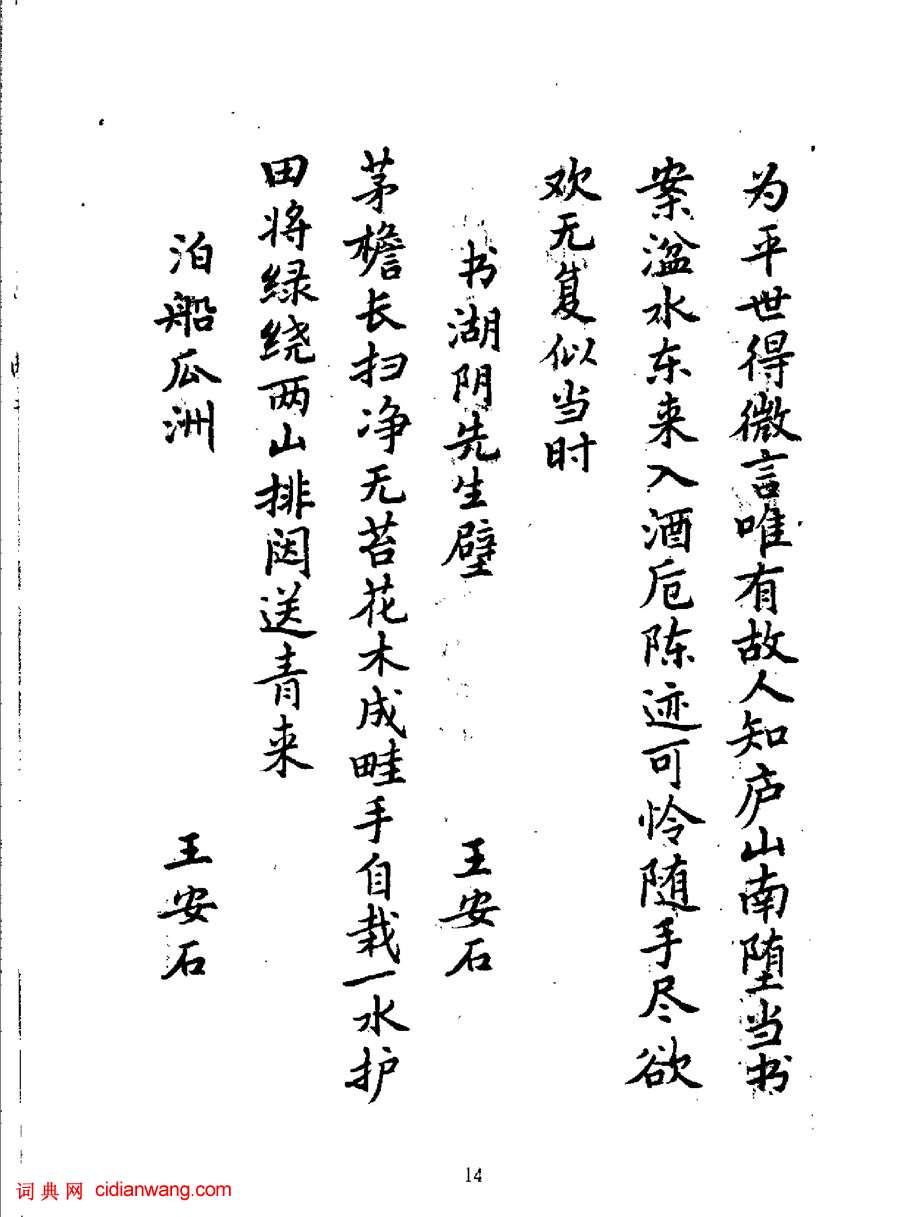 为平世得微言唯有故人知庐山南堕当书
案湓水东来入酒卮陈迹可怜随手尽欲
欢无复似当时
书湖阴先生壁 王安石
茅檐长扫净无苔花木成畦手自栽一水护
田将绿绕两山排闼送青来
泊船瓜洲 王安石
14
词典网 cidianwang.com